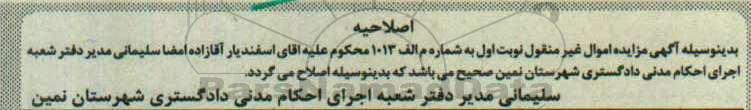 اصلاحیه
بدینوسیله آگهی مزایده اموال غیر منقول نوبت اول به شماره م الف ۱۰۱۳ محکوم علیه اقای اسفندیار آقازاده امضا سلیمانی مدیر دفتر شعبه
اجرای احکام مدنی دادگستری شهرستان نمین صحیح می باشد که بدینوسیله اصلاح می گردد.
سلیمانی مدیر دفتر شعبه اجرای احکام مدنی دادگستری شهرستان نمین